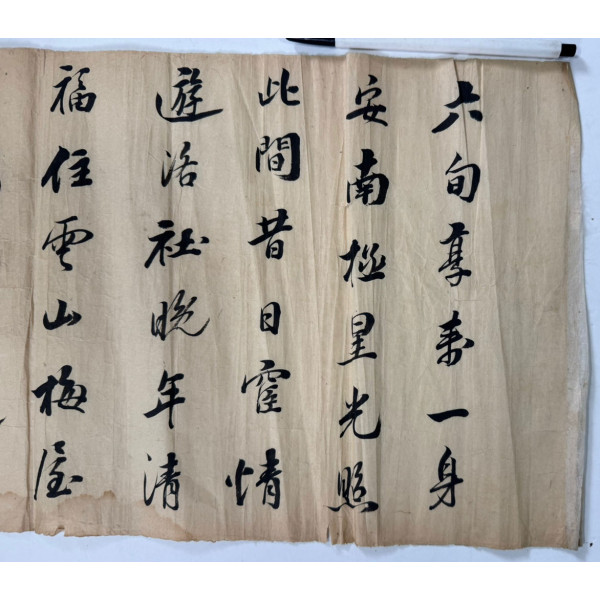 六旬享壽一身
安南極星光照
此間昔日寵情
遊洛社晚年清
福住雲山梅屋